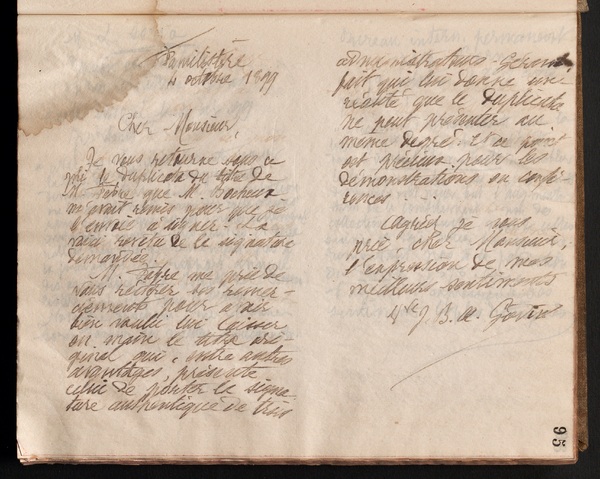 Familistère
4 octobre 1899
Cher Monsieur,
Je vous retourne sous ce
pli le duplicata du titre de
M. Fabre que M.
m'avait remis pour que je
l'envoie à signer. Il a
reçu revêtu de la signature
demandée.
M. Fabre me prie de
vous réitérer ses remer-
ciements pour avoir
bien voulu lui laisser
en main le titre ori-
ginal qui, entre autres
avantages, présente
celui de porter la signa-
ture authentique de trois
administrateurs-Gérants
fait qui lui donne une
réalité que le duplicata
ne peut présenter au
même degré. Et ce point
est précieux pour les
démonstrations ou confé-
rences.
Agréez je vous
prie, cher Monsieur,
l'expression de mes
meilleurs sentiments
Vve J. B. A. Godin
95